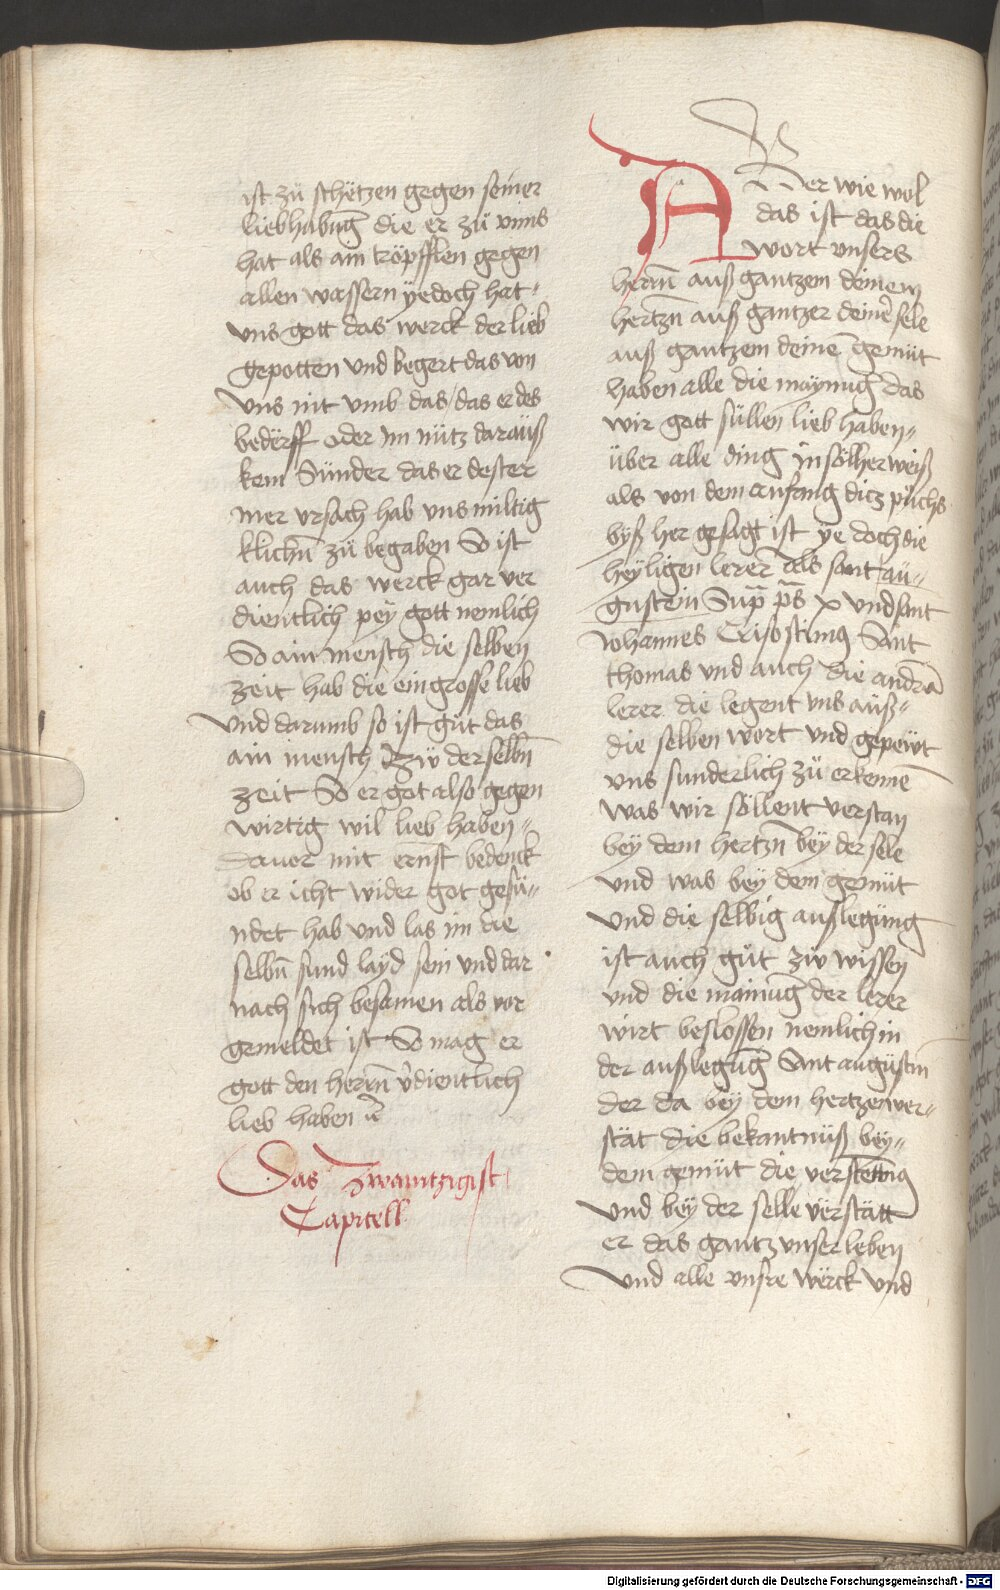 ist zü schëtzen gegen seiner
liebhabūg die er zü vnns
hat als ain tröpfflen gegen
allen wassern ÿedoch hat
vns gott das werck der lieb
gepotten vnd begert das von
vns nit vmb das / das er des
bedërff oder im nütz darauß
kem Sünder das er dester
mer vrsach hab vns miltig
klichñ zü begaben So ist
auch das werck gar ver
dientlich peÿ gott nemlich
So ain mensch die selben
zeit hab die ein grosse lieb
vnd darumb so ist güt das
ain mensch zw der selbñ
zeit So er got also gegen
wirtig wil lieb haben
dauor mit ernst bedenck
ob er icht wider got gesü-
ndet hab vnd las im die
selbñ sund layd sein vnd dar
nach sich besamen als vor
gemeldet ist So mag er
gott den herrñ v̓dientlich
lieb haben
Das Zwaintzigist
Capitell
ABer wie wol
das ist das die
wort vnsers
herrñ auß gantzem deinem
hertzñ auß gantzer deiner sele
auß gantzem deinē gemüt
haben alle die maynūg das
wir gott süllen lieb haben
über alle ding in sölher weiß
als von dem anfang ditz püchs
byß her gesagt ist ye doch die
heyligen lerer als sant au-
gustein Sup̄ ps̄ x vnd sant
Johannes Crisostimg Sant
thomas vnd auch die andrē
lerer die legent vns auß
die selben wort vnd gepewt
vns sunderlich zü erkenñe
was wir söllent verstan
bey dem hertzñ bey der sele
vnd was bey dem gemüt
vnd die selbig außlegüng
ist auch güt zw wissen
vnd die mainūg der lerer
wirt beslossen nemlich in
der außlegūg Sant augüstin
der da bey dem hertzen ver-
stät die bekantnüß bey
dem gemüt die verstettnig
vnd bey der selle verstätt
er das gantz vnser leben
vnd alle vnsre wërck vnd
Digitalisierung gefördert durch die Deutsche Forschungsgemeinschaft - DFG